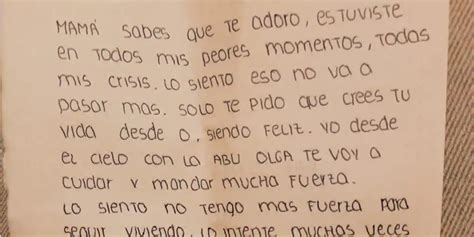 MAMÁ sabes que te adoro, estuviste
en todos mis peores momentos, todas
mis crisis. Lo siento eso no va a
pasar mas. solo te pido que crees tu
vida desde 0, siendo feliz. yo desde
el cielo con la ABU OLGA te voy a
cuidar y mandar mucha fuerza.
Lo siento no tengo mas fuerza para
seguir viviendo. Lo intente muchas veces